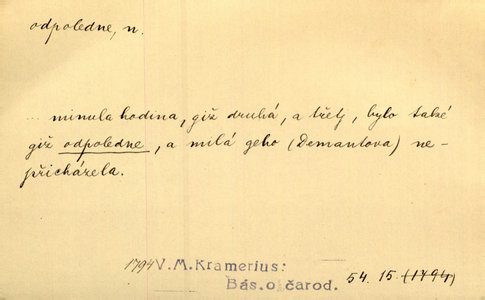 odpoledne, n.
... minula hodina, giž druhá, a třetj, bylo také
giž odpoledne, a milá geho (Demantova) ne-
přicházela.
1794 V. M. Kramerius:
Bás. o čarod.
54. 15. (1794)